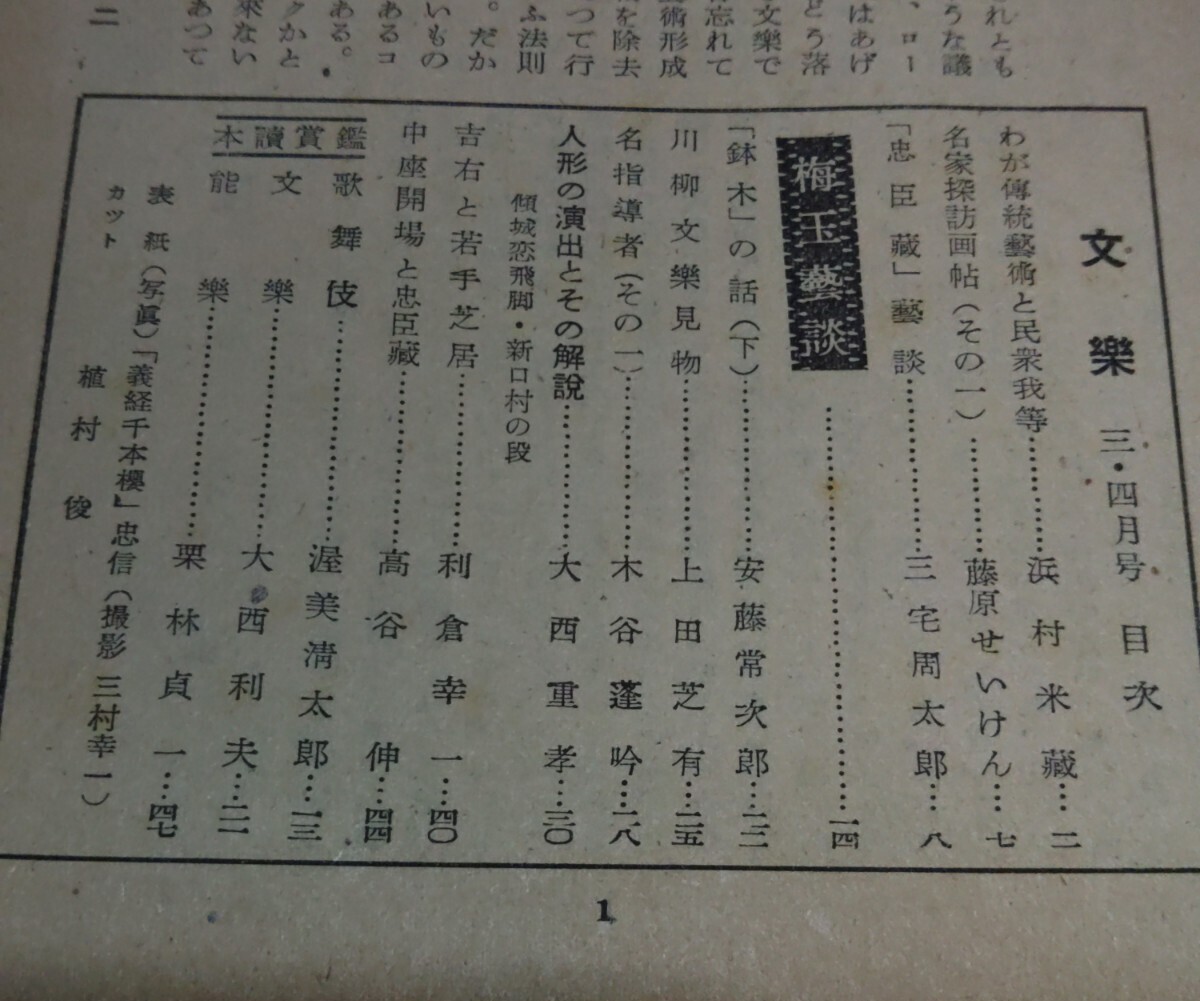 れとも
うな議
、ロー
はあげ
どう落
文樂で
忘れて
術形成
を除去
つて行
ふ法則
。だか
いもの
あるコ
ある。
クかと
來ない
あつて
二
文樂 三・四月号 目次
わが傳統藝術と民衆我等……浜村米藏…二
名家探訪画帖(その一)……藤原せいけん…七
「忠臣藏」藝談……三宅周太郎…八
梅玉藝談……一四
「鉢木」の話(下)……安藤常次郎…二二
川柳文樂見物……上田芝有…二五
名指導者(その一)……木谷蓬吟…二八
人形の演出とその解説……大西重孝…三〇
傾城恋飛脚・新口村の段
吉右と若手芝居……利倉幸一…四〇
中座開場と忠臣藏……高谷伸…四四
鑑賞讀本
歌舞伎……渥美淸太郎…一三
文樂……大西利夫…二一
能樂……栗林貞一…四七
表紙(写眞)「義経千本櫻」忠信(撮影 三村幸一)
カット 植村俊
1